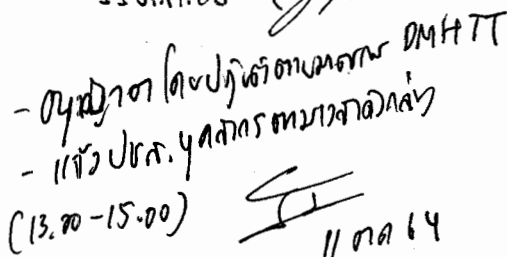 - อนุญาต โดยปฏิบัติตามมาตรการ DMHTT
- แจ้ง ปชส. บุคลากรตามเวลาดังกล่าว
(13.00-15.00)
11 ตค 64